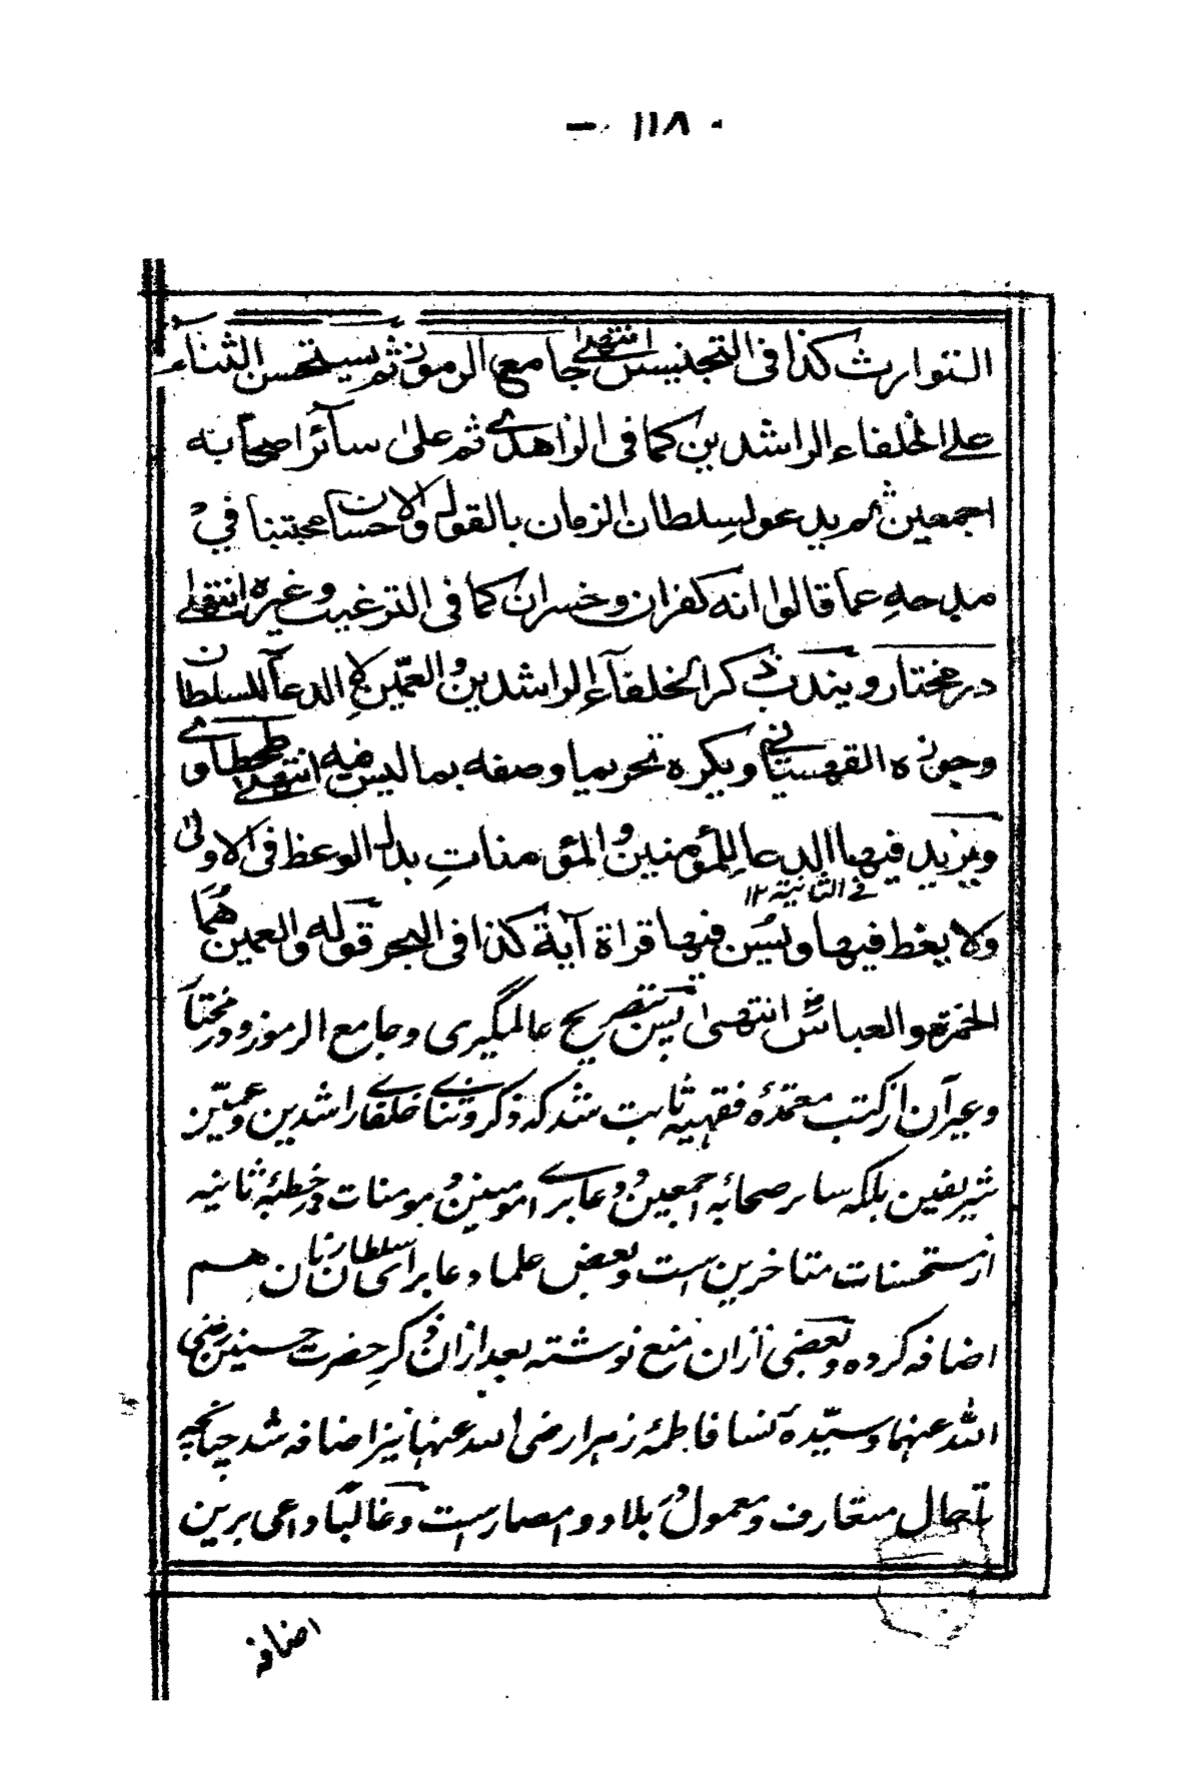 - ١١٨ -
التوارث كذا فى التجنيس انتهى جامع الرموز ثم يستحسن الثناء
على الخلفاء الراشدين كما فى الزاهدى ثم على سآئر اصحابه
اجمعين ثم يدعو لسلطان الزمان بالقول والاحسان مجتنبا في
مدحه عما قالوا انه كفران وخسران كما فى الترغيب وغيره انتهى
درمختار ويندب ذكر الخلفآء الراشدين والعمّين لا الدعآ للسلطان
وجوزه القهستانى ويكره تحريما وصفه بما ليس فيه انتهى طحطاوى
ويزيد فيها الدعا للمؤمنين والمؤمناتِ بدل الوعظ فى الاولى
فى الثانية ١٢
ولا يعظ فيها ويسن فيها قراة آية كذا فى البحر قوله والعمين هُمَا
الحمزة والعباس انتهى پس بتصريح عالمگيرى و جامع الرموز و درمختار
وغير آن از كتب معتمدهٔ فقهيه ثابت شد كه ذكر و ثناى خلفاى راشدين و عمّين
شريفين بلكه ساير صحابهٔ اجمعين و دعا براى مومنين و مومنات در خطبهٔ ثانيه
از مستحسنات متاخرين است و بعض علما دعا براى سلطان زمان هم
اضافه كرده و بعضى ازان منع نوشته بعد ازان ذكر حضرت حسنين رضى
الله عنهما و سيّدة نسا فاطمهٔ زهرا رضى الله عنها نيز اضافه شد چنانچه
تاحال متعارف و معمول بلاد و امصار است و غالبًا داعى برين
اضافه